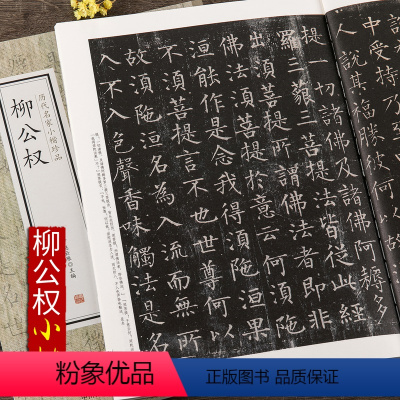 中受持乃
人說其福勝彼
提一切諸佛及諸佛阿耨多
羅三藐三菩提法皆從此經
出須菩提所謂佛法者即非
佛法須菩提於意云何須陁
洹能作是念我得須陁洹果
不須菩提言不也世尊何以
故須陁洹名為入流而無所
入不入色聲香味觸法是名
历代名家小楷珍品
柳公权
主编
柳公权小
粉象优品
正版图书 电子发票 破损补寄